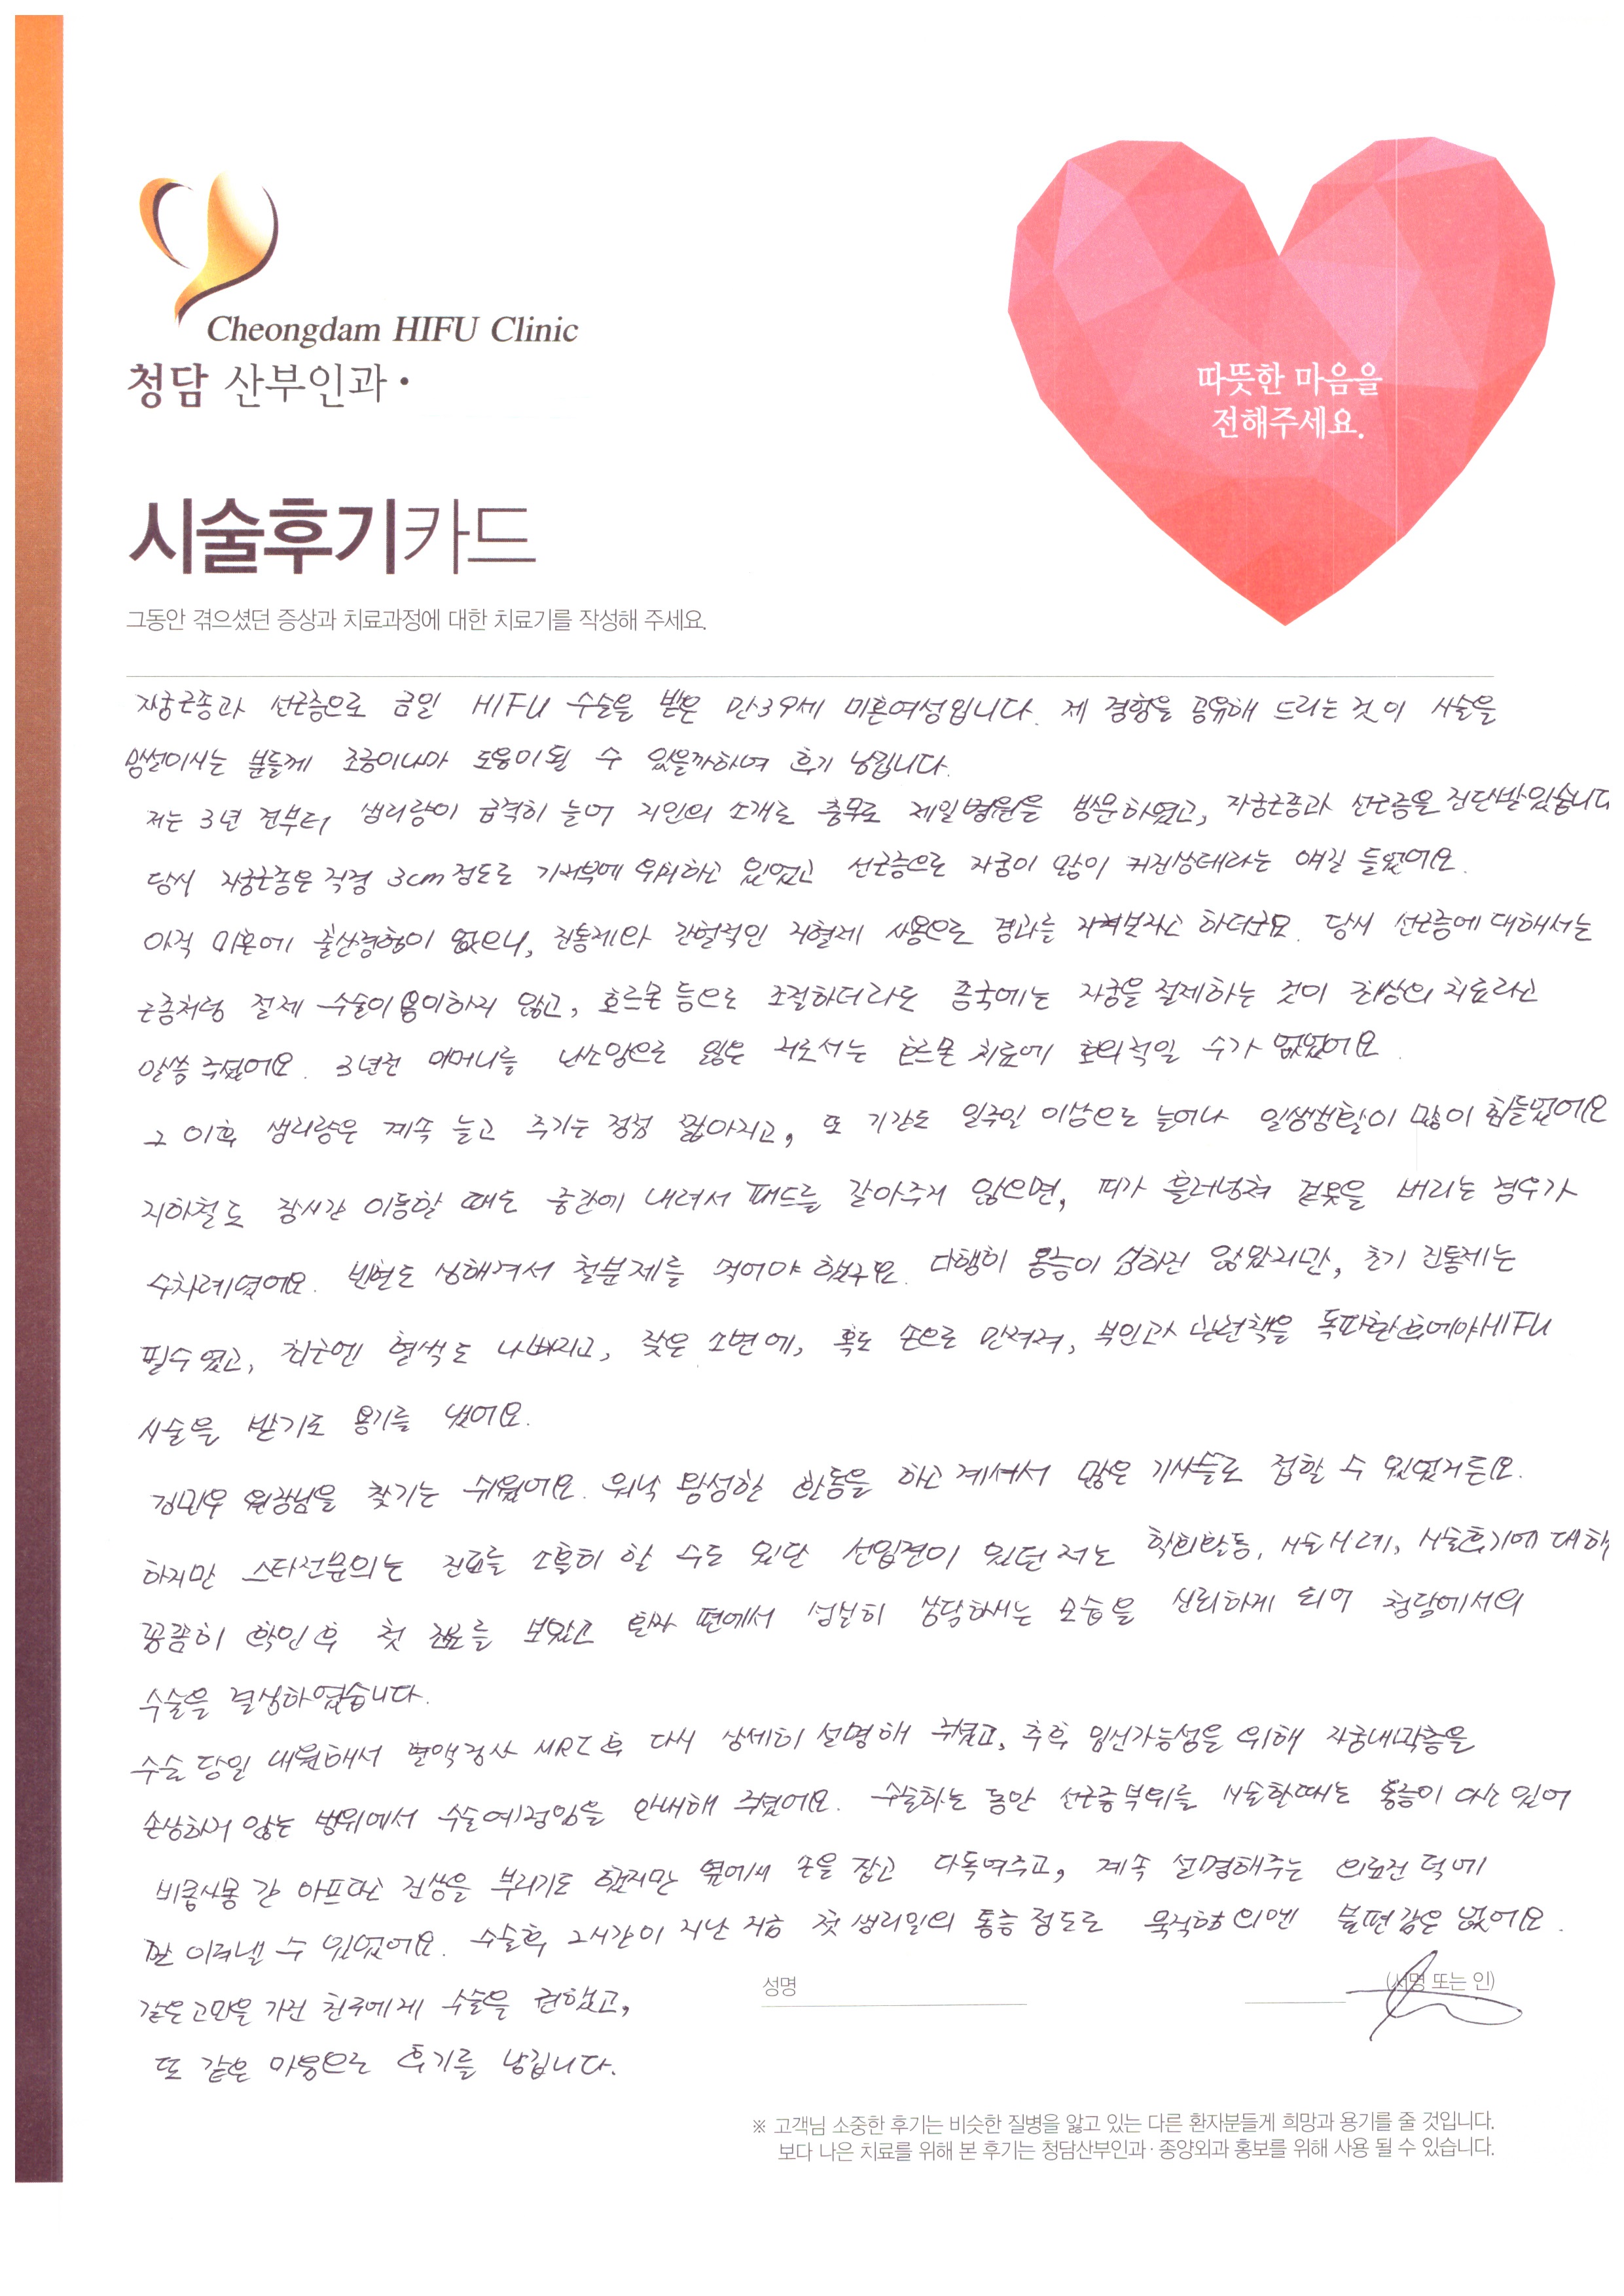 Cheongdam HIFU Clinic
청담 산부인과·
따뜻한 마음을
전해주세요.
시술후기카드
그동안 겪으셨던 증상과 치료과정에 대한 치료기를 작성해 주세요.
자궁근종과 선근증으로 금일 HIFU 수술을 받은 만39세 미혼여성입니다. 제 경험을 공유해 드리는 것이 시술을
망설이시는 분들께 조금이나마 도움이 될 수 있을까하여 후기 남깁니다.
저는 3년 전부터 생리량이 급격히 늘어 지인의 소개로 충무로 제일병원을 방문하였고, 자궁근종과 선근증을 진단받았습니다
당시 자궁근종은 직경 3cm 정도로 기저부에 위치하고 있었고 선근증으로 자궁이 많이 커진상태라는 얘길 들었어요.
아직 미혼에 출산경험이 없으니, 진통제와 간헐적인 지혈제 사용으로 경과를 지켜보자고 하더군요. 당시 선근증에 대해서는
근종처럼 절제 수술이 용이하지 않고, 호르몬 등으로 조절하더라도 종국에는 자궁을 절제하는 것이 최상의 치료라고
말씀 주셨어요. 3년전 어머니를 난소암으로 잃은 저로서는 호르몬 치료에 호의적일 수가 없었어요.
그 이후 생리량은 계속 늘고 주기는 점점 짧아지고, 또 기간도 일주일 이상으로 늘어나 일상생활이 많이 힘들었어요
지하철도 장시간 이동할 때는 중간에 내려서 패드를 갈아주지 않으면, 피가 흘러넘쳐 겉옷을 버리는 경우가
수차례였어요. 빈혈도 심해져서 철분제를 먹어야 했구요. 다행히 통증이 심하진 않았지만, 초기 진통제는
필수였고, 최근엔 혈색도 나빠지고, 잦은 소변에, 혹도 손으로 만져져, 부인과 관련책을 독파한 후에야 HIFU
시술을 받기로 용기를 냈어요.
김민우 원장님을 찾기는 쉬웠어요. 워낙 왕성한 활동을 하고 계셔서 많은 기사들로 접할 수 있었거든요.
하지만 스타전문의는 진료를 소홀히 할 수도 있단 선입견이 있던 저는 학회활동, 시술사례, 시술후기에 대해
꼼꼼히 확인 후 첫 진료를 보았고 환자 편에서 성실히 상담하시는 모습을 신뢰하게 되어 청담에서의
수술을 결심하였습니다.
수술 당일 내원해서 혈액검사 MRI 후 다시 상세히 설명해 주셨고, 추후 임신가능성을 위해 자궁내막층을
손상하지 않는 범위에서 수술예정임을 안내해 주셨어요. 수술하는 동안 선근증부위를 시술할때는 통증이 다소 있어
비몽사몽 간 아프다고 진상을 부리기도 했지만 옆에서 손을 잡고 다독여주고, 계속 설명해주는 의료진 덕에
잘 이겨낼 수 있었어요. 수술후 2시간이 지난 지금 첫 생리일의 통증 정도로 묵직함 외엔 불편감은 없어요.
같은 고민을 가진 친구에게 수술을 권했고,
또 같은 마음으로 후기를 남깁니다.
성명
(서명 또는 인)
※ 고객님 소중한 후기는 비슷한 질병을 앓고 있는 다른 환자분들께 희망과 용기를 줄 것입니다.
보다 나은 치료를 위해 본 후기는 청담산부인과·종양외과 홍보를 위해 사용 될 수 있습니다.